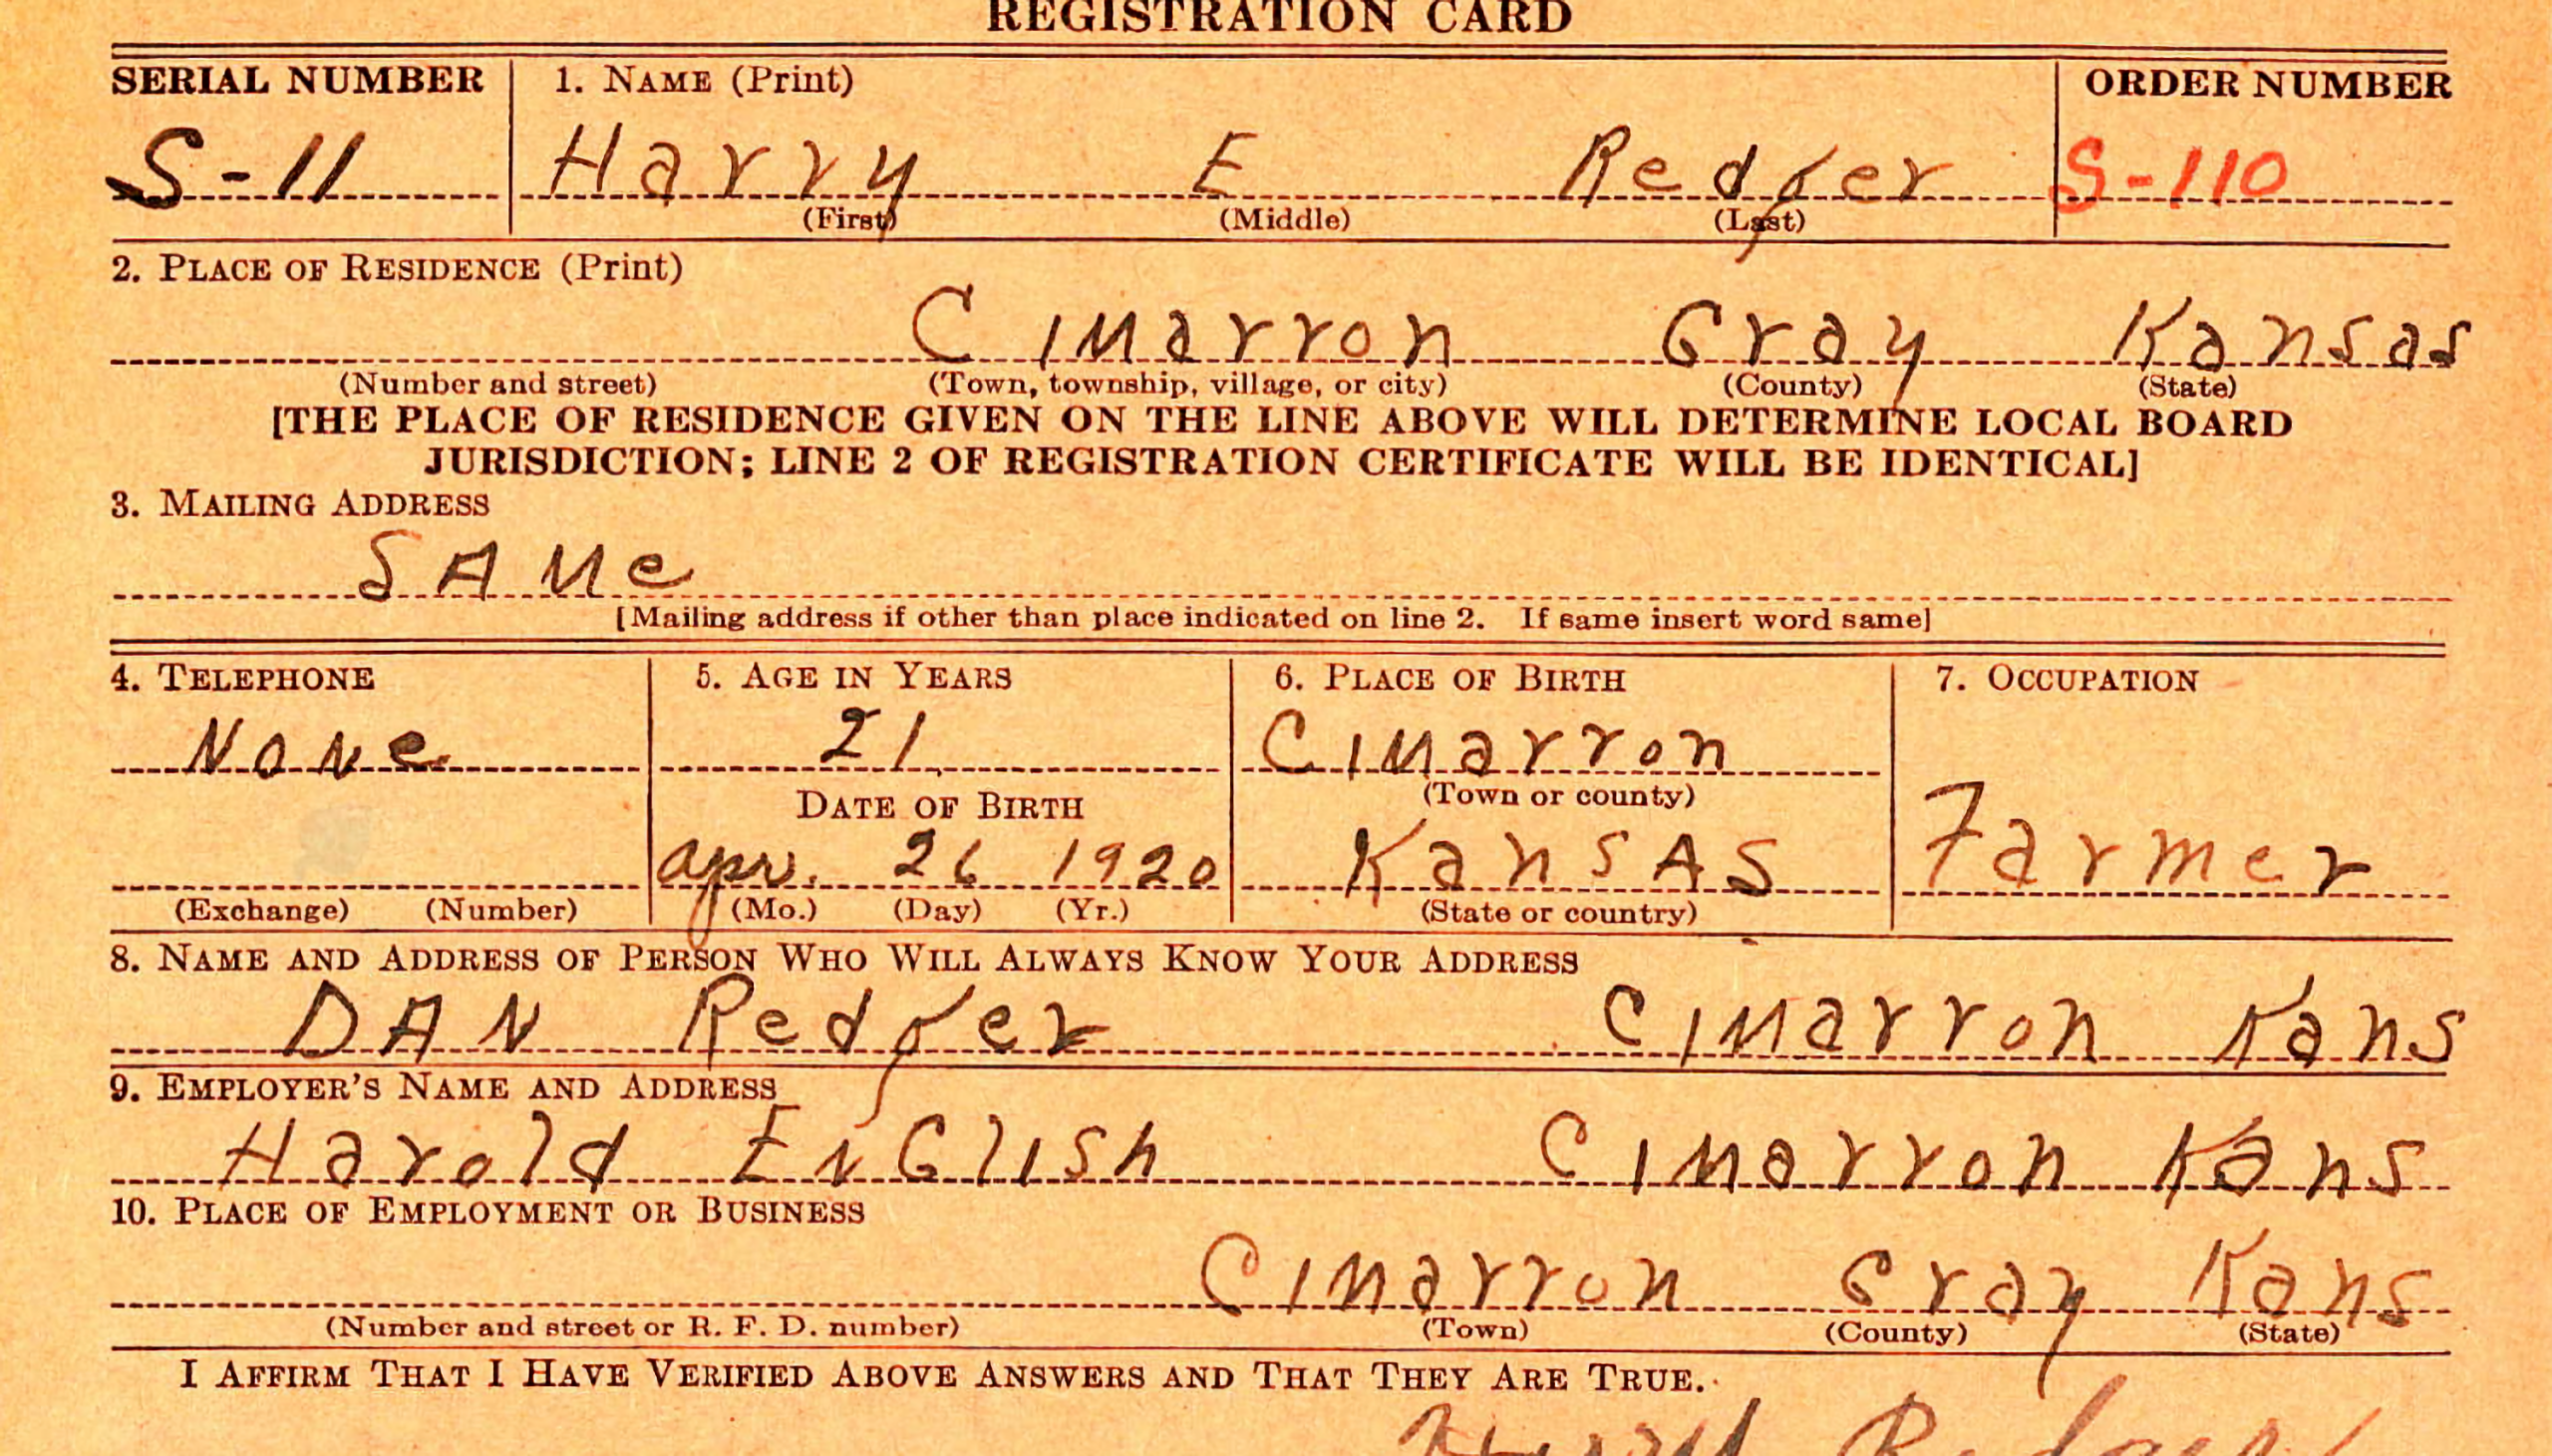 REGISTRATION CARD
SERIAL NUMBER 1. NAME (Print) ORDER NUMBER
S-11 Harry E Redger S-110
(First) (Middle) (Last)
2. PLACE OF RESIDENCE (Print)
Cimarron Gray Kansas
(Number and street) (Town, township, village, or city) (County) (State)
[THE PLACE OF RESIDENCE GIVEN ON THE LINE ABOVE WILL DETERMINE LOCAL BOARD
JURISDICTION; LINE 2 OF REGISTRATION CERTIFICATE WILL BE IDENTICAL]
3. MAILING ADDRESS
SAMe
[Mailing address if other than place indicated on line 2. If same insert word same]
4. TELEPHONE 5. AGE IN YEARS 6. PLACE OF BIRTH 7. OCCUPATION
None 21 Cimarron
DATE OF BIRTH (Town or county)
apr. 26 1920 KansAS Farmer
(Exchange) (Number) (Mo.) (Day) (Yr.) (State or country)
8. NAME AND ADDRESS OF PERSON WHO WILL ALWAYS KNOW YOUR ADDRESS
DAN Redger Cimarron Kans
9. EMPLOYER'S NAME AND ADDRESS
Harold EnGlish Cimarron Kans
10. PLACE OF EMPLOYMENT OR BUSINESS
Cimarron Gray Kans
(Number and street or R. F. D. number) (Town) (County) (State)
I AFFIRM THAT I HAVE VERIFIED ABOVE ANSWERS AND THAT THEY ARE TRUE.
Harry Redger